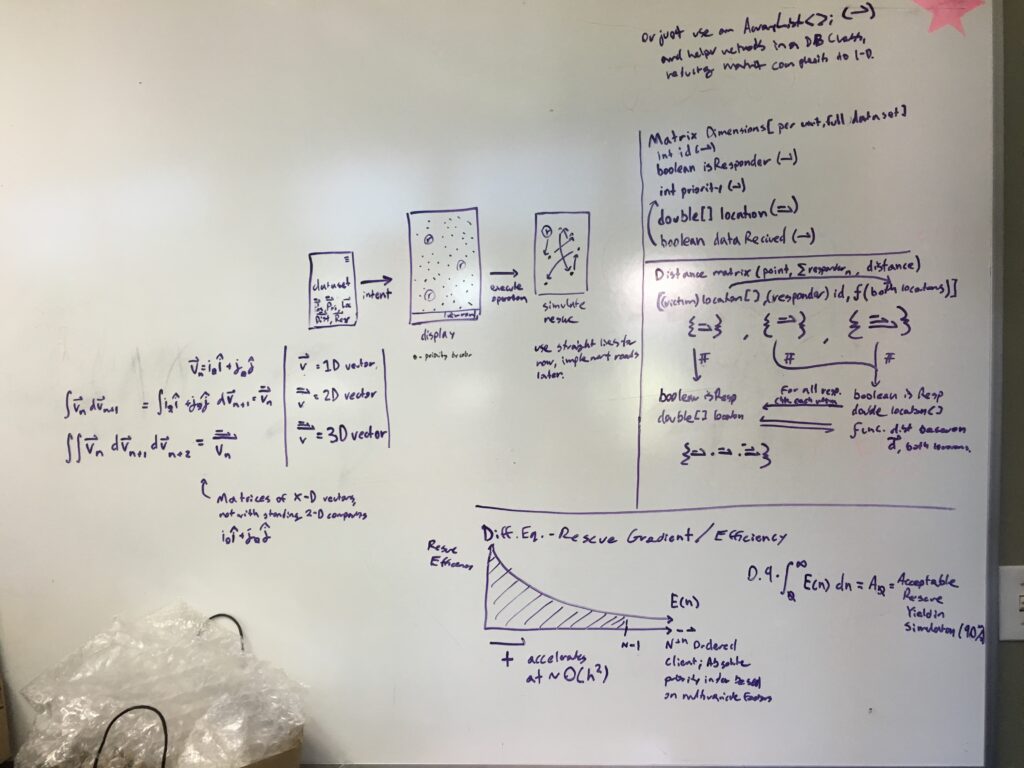 Or just use an ArrayList<>; (→)
and helper methods in a DB Class,
reducing matrix complexity to 1-D.
Matrix Dimensions[per unit, full dataset]
int id (→)
boolean isResponder (→)
int priority (→)
double[] location (⇒)
boolean dataRecived (→)
Distance matrix (point, Σresponder n, distance)
[(victim) location[], (responder) id, f(both locations)]
{⇒} , {⇒} , {⇛}
# # #
boolean isResp
double[] location
For all resp.
boolean is Resp
double location[]
func. dist between
d⃗, both locations.
{⇒·⇒·⇛}
dataset
intent
r
r
r
display
● - priority by color
execute
operation
r
simulate
rescue
use straight lines for
now, implement roads
later.
V⃗n = i₀î + j₀ĵ
∫V⃗n dV⃗n+1 = ∫i₀î + j₀ĵ dV⃗n+1 = V⃗n
∫∫V⃗n dV⃗n+1 dV⃗n+2 = V⃗n
v⃗ = 1D vector.
v = 2D vector
v = 3D vector
Matrices of X-D vectors,
not with standing 2-D components
i₀î + j₀ĵ
Diff. Eq. - Rescue Gradient / Efficiency
Rescue
Efficiency
E(n)
N-1
+ accelerates
at ~ O(h²)
Nth Ordered
Client; Absolute
priority index based
on multivariate factors
0.9 · ∫ ∞ E(n) dn = A = Acceptable
Rescue
Yield in
Simulation (90%)